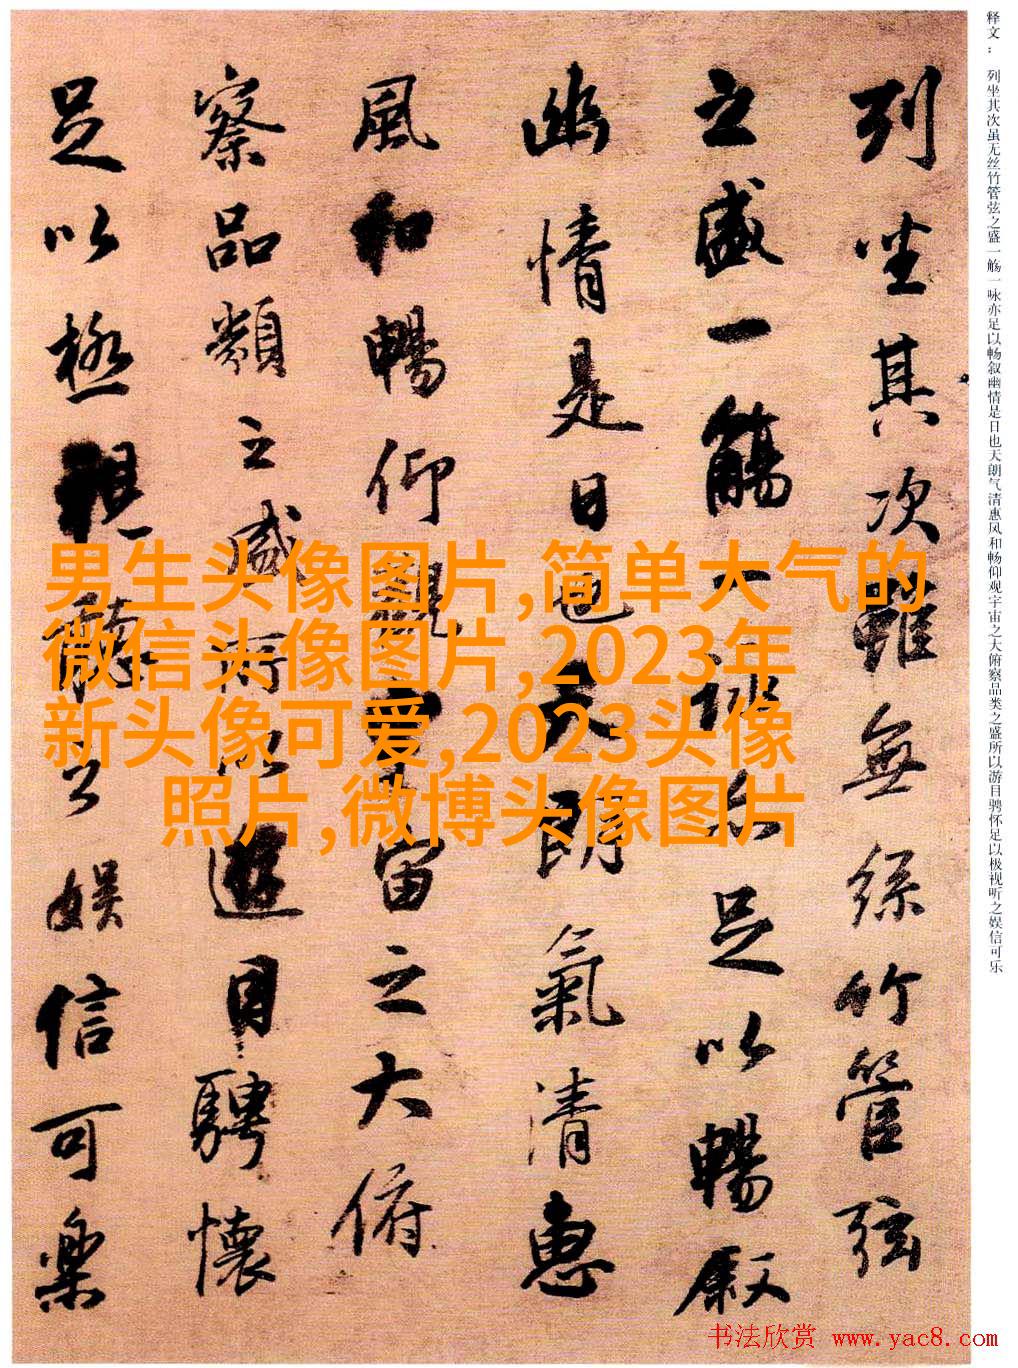 释文： 列坐其次虽无丝竹管弦之盛一觞一咏亦足以畅叙幽情是日也天朗气清惠风和畅仰观宇宙之大俯察品类之盛所以游目骋怀足以极视听之娱信可乐
列坐其次雖無絲竹管弦
之盛一觴一詠亦足以暢叙
幽情是日也天朗氣清惠
風和暢仰觀宇宙之大俯
察品類之盛所以遊目騁懷
足以極視聽之娛信可樂
男生头像图片,简单大气的
微信头像图片,2023年
新头像可爱,2023头像
照片,微博头像图片
书法欣赏 www.yac8.com